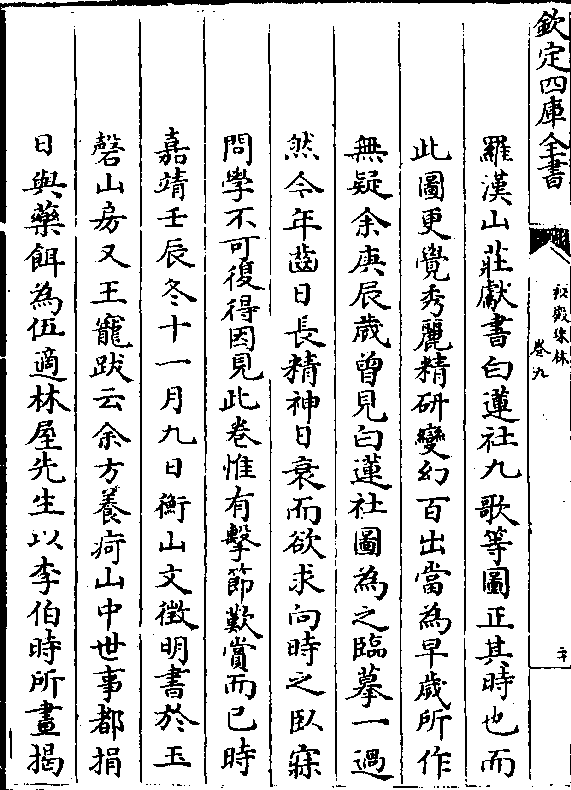 欽定四庫全書
祕殿珠林
卷九
羅漢山莊獻書白蓮社九歌等圖正其時也而
此圖更覺秀麗精研變幻百出當為早歲所作
無疑余庚辰歲曾見白蓮社圖為之臨摹一過
然今年齒日長精神日衰而欲求向時之臥寐
問學不可復得因見此卷惟有擊節歎賞而已時
嘉靖壬辰冬十一月九日衡山文徵明書於玉
磬山房又王寵跋云余方養疴山中世事都捐
日與藥餌為伍適林屋先生以李伯時所畫揭